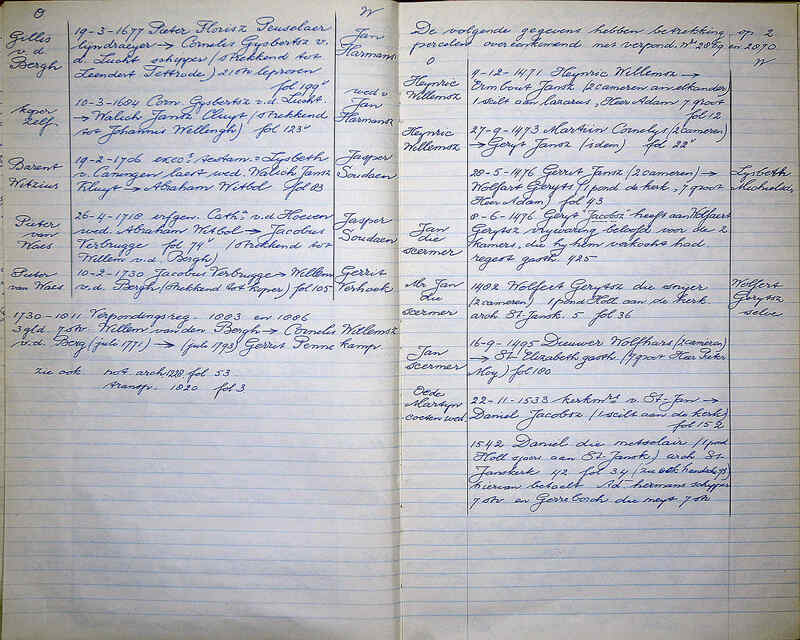 O
W
Gilles
v.d.
Bergh
19-3-1677 Pieter Florisz Peuselaer
lijndraeyer → Cornelis Gysbertsz v.
d. Lucht schipper (strekkend tot
Leendert Tettrode) 210st leprosen
fol 199v
Jan
Harmansz
koper
zelf
10-3-1684 Corn. Gysbertsz v.d. Lucht
→ Walich Jansz Cluyt (strekkend
tot Johannus Wellengh) fol 123v
wed v.
Jan
Harmansz
Barent
Witzius
19-2-1706 execs testam. Lysbeth
v. laest wed. Walich Jansz
Kluyt → Abraham Witbol fol 83
Jasper
Soudaen
Pieter
van
Waes
26-4-1718 erfgen. Cath. v.d. Hoeven
wed. Abraham Witbol → Jacobus
Verbrugge fol 74v (strekkend tot
Willem v.d. Bergh)
Jasper
Soudaen
Pieter
van Waes
10-2-1730 Jacobus Verbrugge → Willem
v.d. Bergh (strekkend tot koper) fol 105
Gerrit
Verhoek
1730-1811 Verpondingsreg. 1003 en 1006
3 gld. 7 str. Willem van den Bergh → Cornelis Willemsz
v.d. Berg (julij 1771) → (julij 1793) Gerrit Penne kamp.
zie ook not. arch 1228 fol 53
transp. 1820 fol 3
De volgende gegevens hebben betrekking op 2
percelen overeenkomend met verpond. nrs 2889 en 2890.
O
W
Heynric
Willemsz
9-12-1471 Heynric Willemsz →
Ermbout Jansz (2 cameren an elkander)
1 scilt aan lazarus, Heer Adam 7 groot
fol 12
Heynric
Willemsz
27-9-1473 Martiin Cornelys (2 cameren)
→ Geryt Jansz (idem) fol 22v
28-5-1476 Gerrit Jansz (2 cameren) →
Wolfart Geryts (1 pond de kerk, 7 groot
Heer Adam) fol 43
Lysbeth
Michielsdr
Jan
die
scermer
8-6-1476 Geryt "Jacobsz" heeft aan Wolfaert
Gerytsz vrijwaring beloofd voor de 2
kamers, die hy hem verkocht had.
regest gasth. 425
Mr Jan
die
scermer
1482 Wolfert Gerytsz die snyer
(2 cameren) 1 pond Holl aan de kerk
arch St. Jansk. 5 fol 36
Wolfert
Gerytsz
selve
Jan
scermer
16-9-1495 Deuwer Wolfhars (2 cameren)
→ St. Elizabeth gasth. (7 groot Heer Pieter
Moy) fol 180
Oede
Martyn
coeten wed.
22-11-1533 kerkmrs v. St-Jan →
Daniel Jacobsz (1 scilt aan de kerk)
fol 152
1542 Daniel die metselair (1 pond
Holl sjoers aan St-Jansk) arch St
Janskerk 42 fol 34 (zie ook
hiervan betaelt Ad. hermans schipper
7 str en Gerrebosch die neyt 7 str